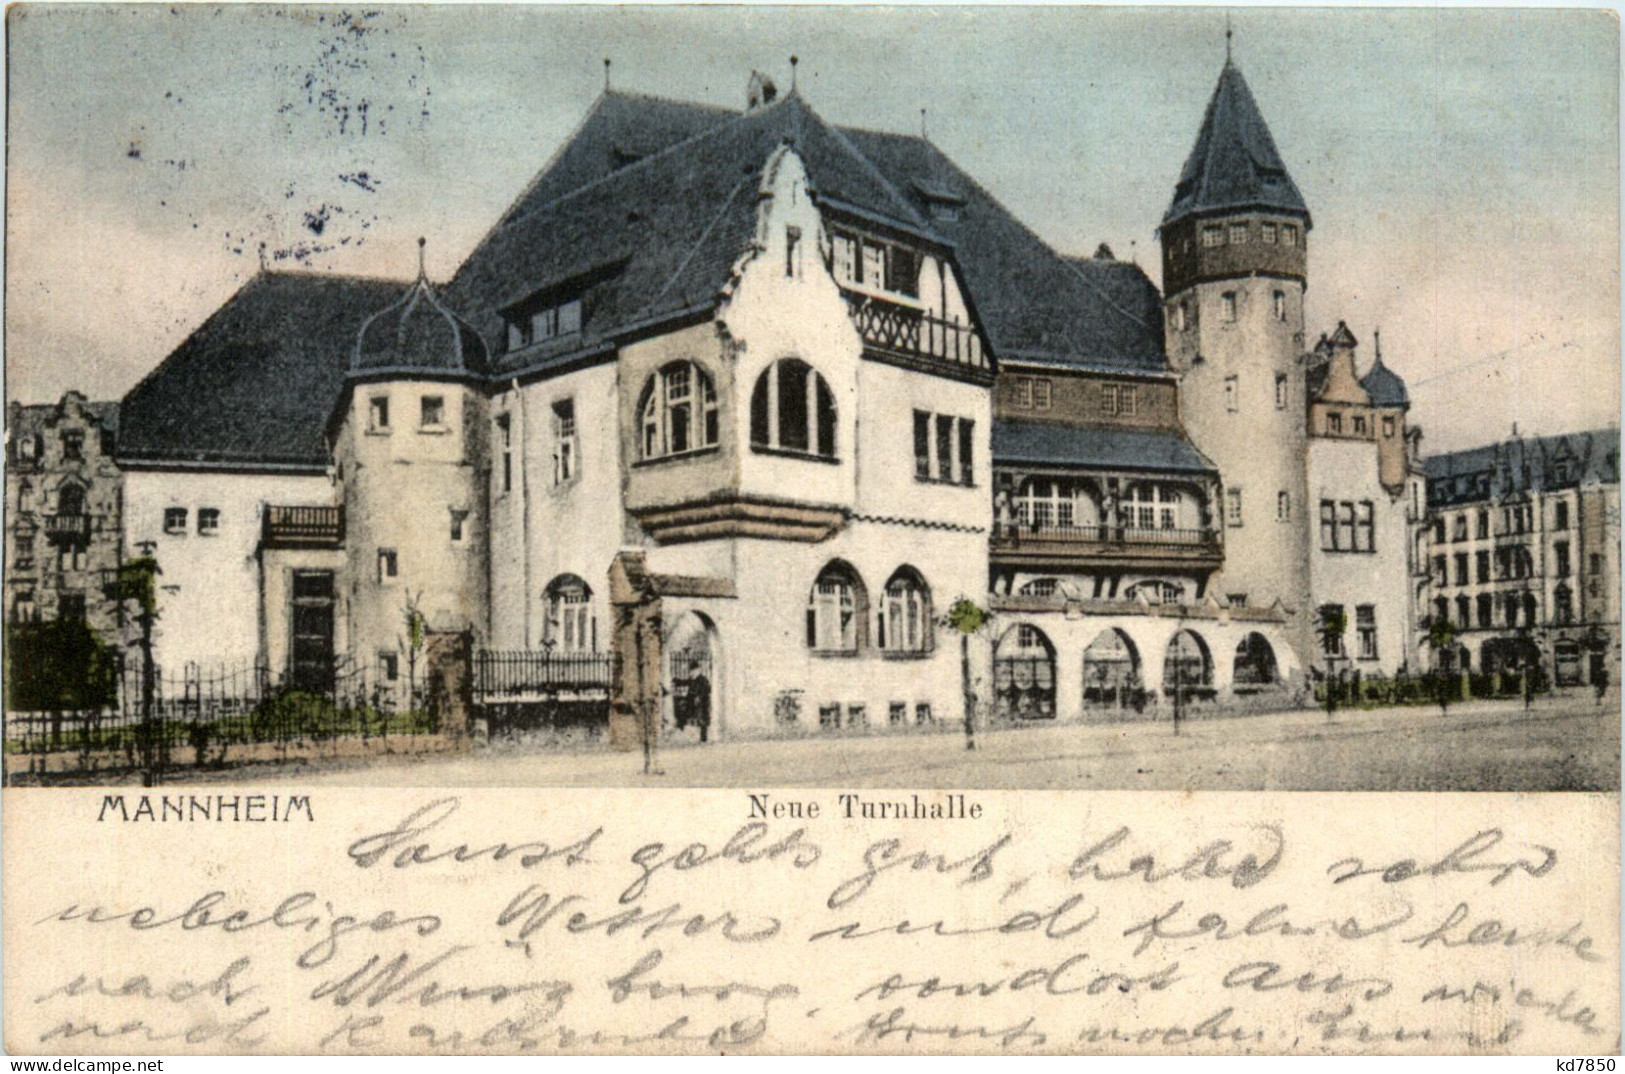 MANNHEIM
Neue Turnhalle
Sonst gehts gut, habe sehr
nebeliges Wetter und fahre heute
nach Würzburg, von dort aus wieder
nach Karlsruhe noch
kd7850